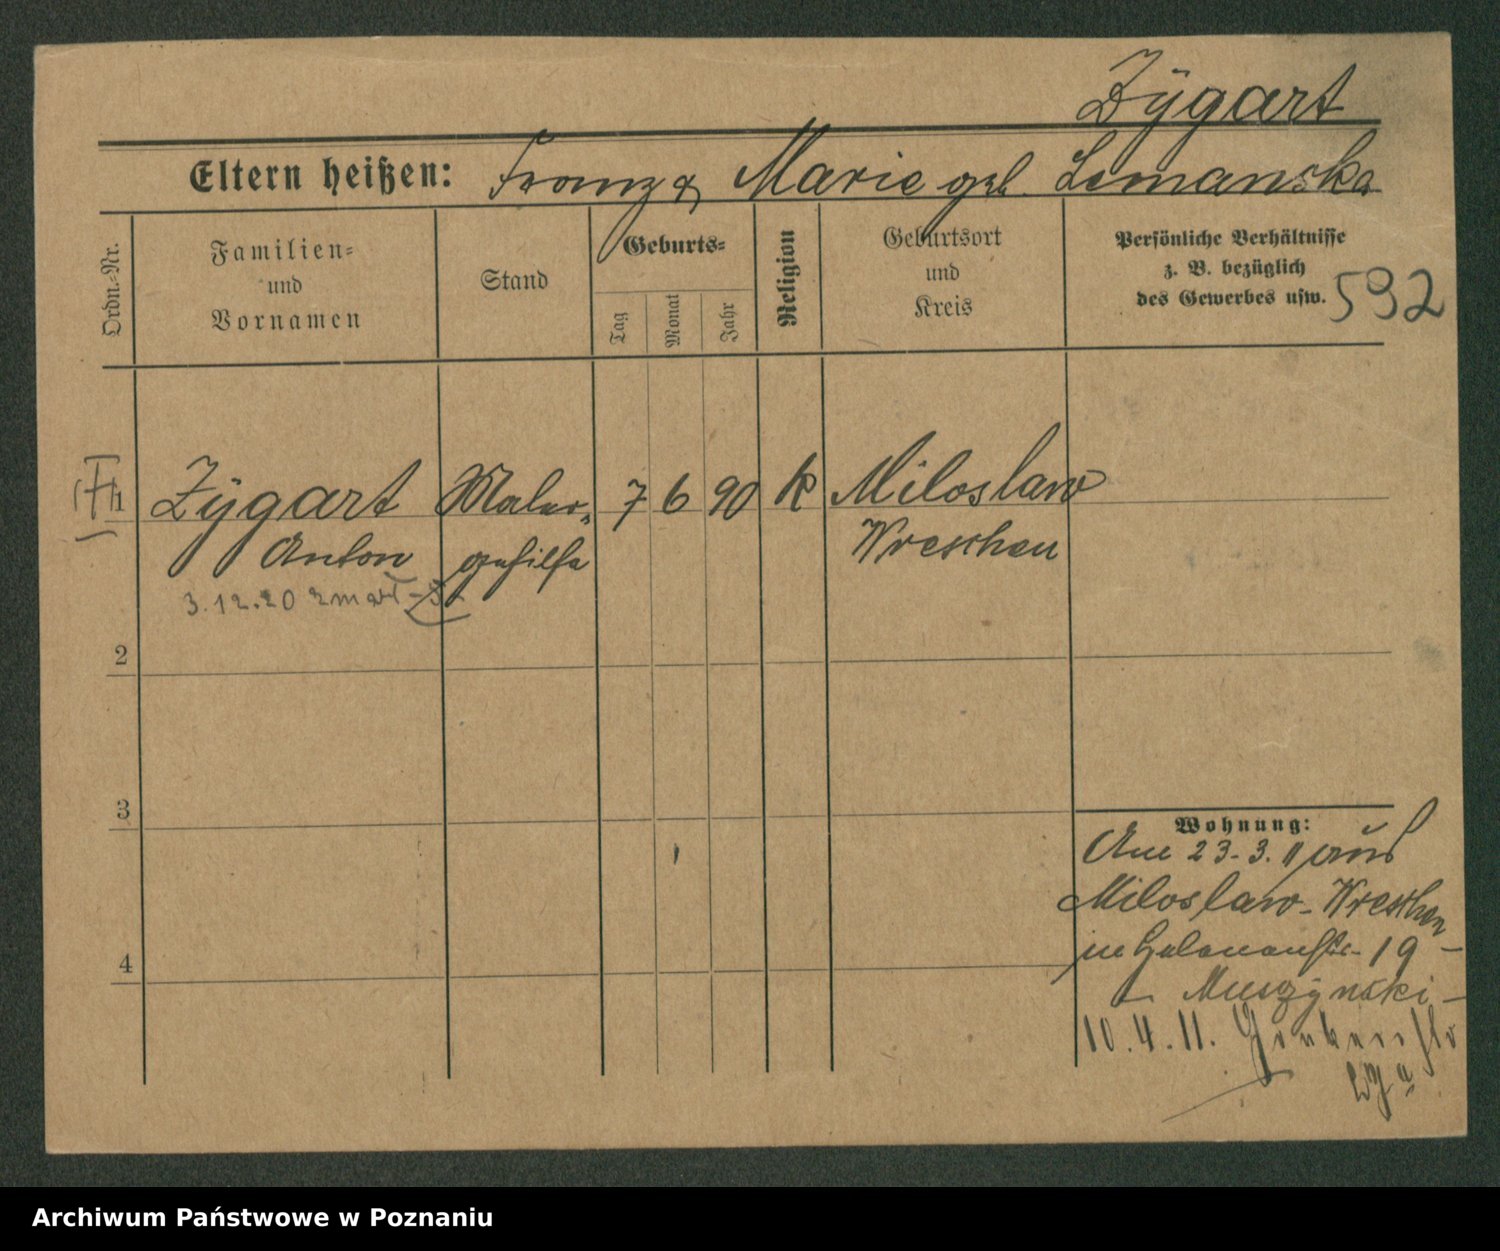 Zÿgart
Eltern heißen: Franz & Marie geb. Lemanska
Ordn.-Nr.
Familien- und Vornamen
Stand
Geburts-
Tag
Monat
Jahr
Religion
Geburtsort und Kreis
Persönliche Verhältnisse
z. B. bezüglich
des Gewerbes usw.
592
1 Zÿgart Maler- 7 6 90 k Miloslaw
Anton gehilfe Wreschen
3.12.20 zmarł
2
3
4
Wohnung:
Am 23.3.11 aus
Miloslaw-Wreschen
in 19
Muszÿnski
10.4.11.
Archiwum Państwowe w Poznaniu